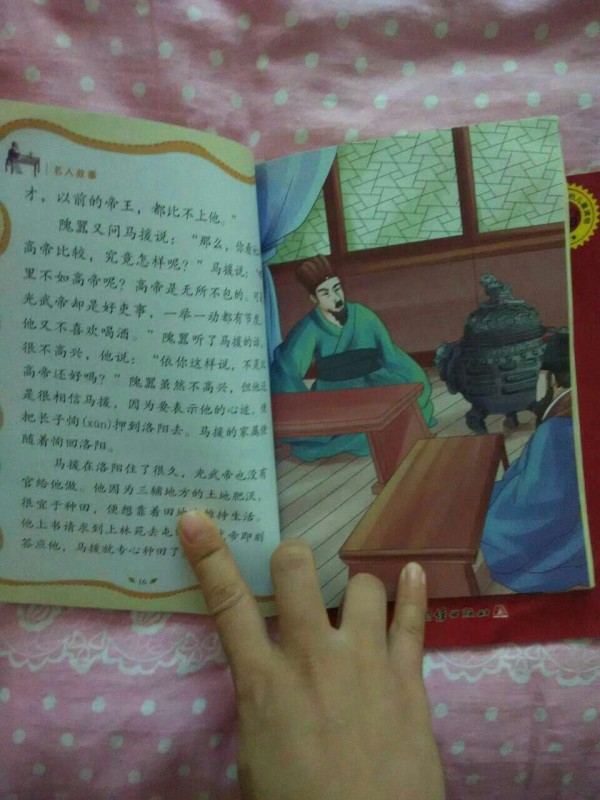 名人故事
才，以前的帝王，都比不上他。”
隗嚣又问马援说：“那么，你看
高帝比较，究竟怎样呢？”马援说：“
里不如高帝呢？高帝是无所不包的。可
光武帝却是好吏事，一举一动都有节度，
他又不喜欢喝酒。”隗嚣听了马援的话，
很不高兴，他说：“依你这样说，不是比
高帝还好吗？”隗嚣虽然不高兴，但他还
是很相信马援，因为要表示他的心迹，便
把长子恂(xún)押到洛阳去。马援的家属便
随着恂回洛阳。
马援在洛阳住了很久，光武帝也没有
官给他做。他因为三辅地方的土地肥沃，
很宜于种田，便想靠着田地维持生活。
他上书请求到上林苑去屯 帝即刻
答应他，马援就专心种田了
16
出版社